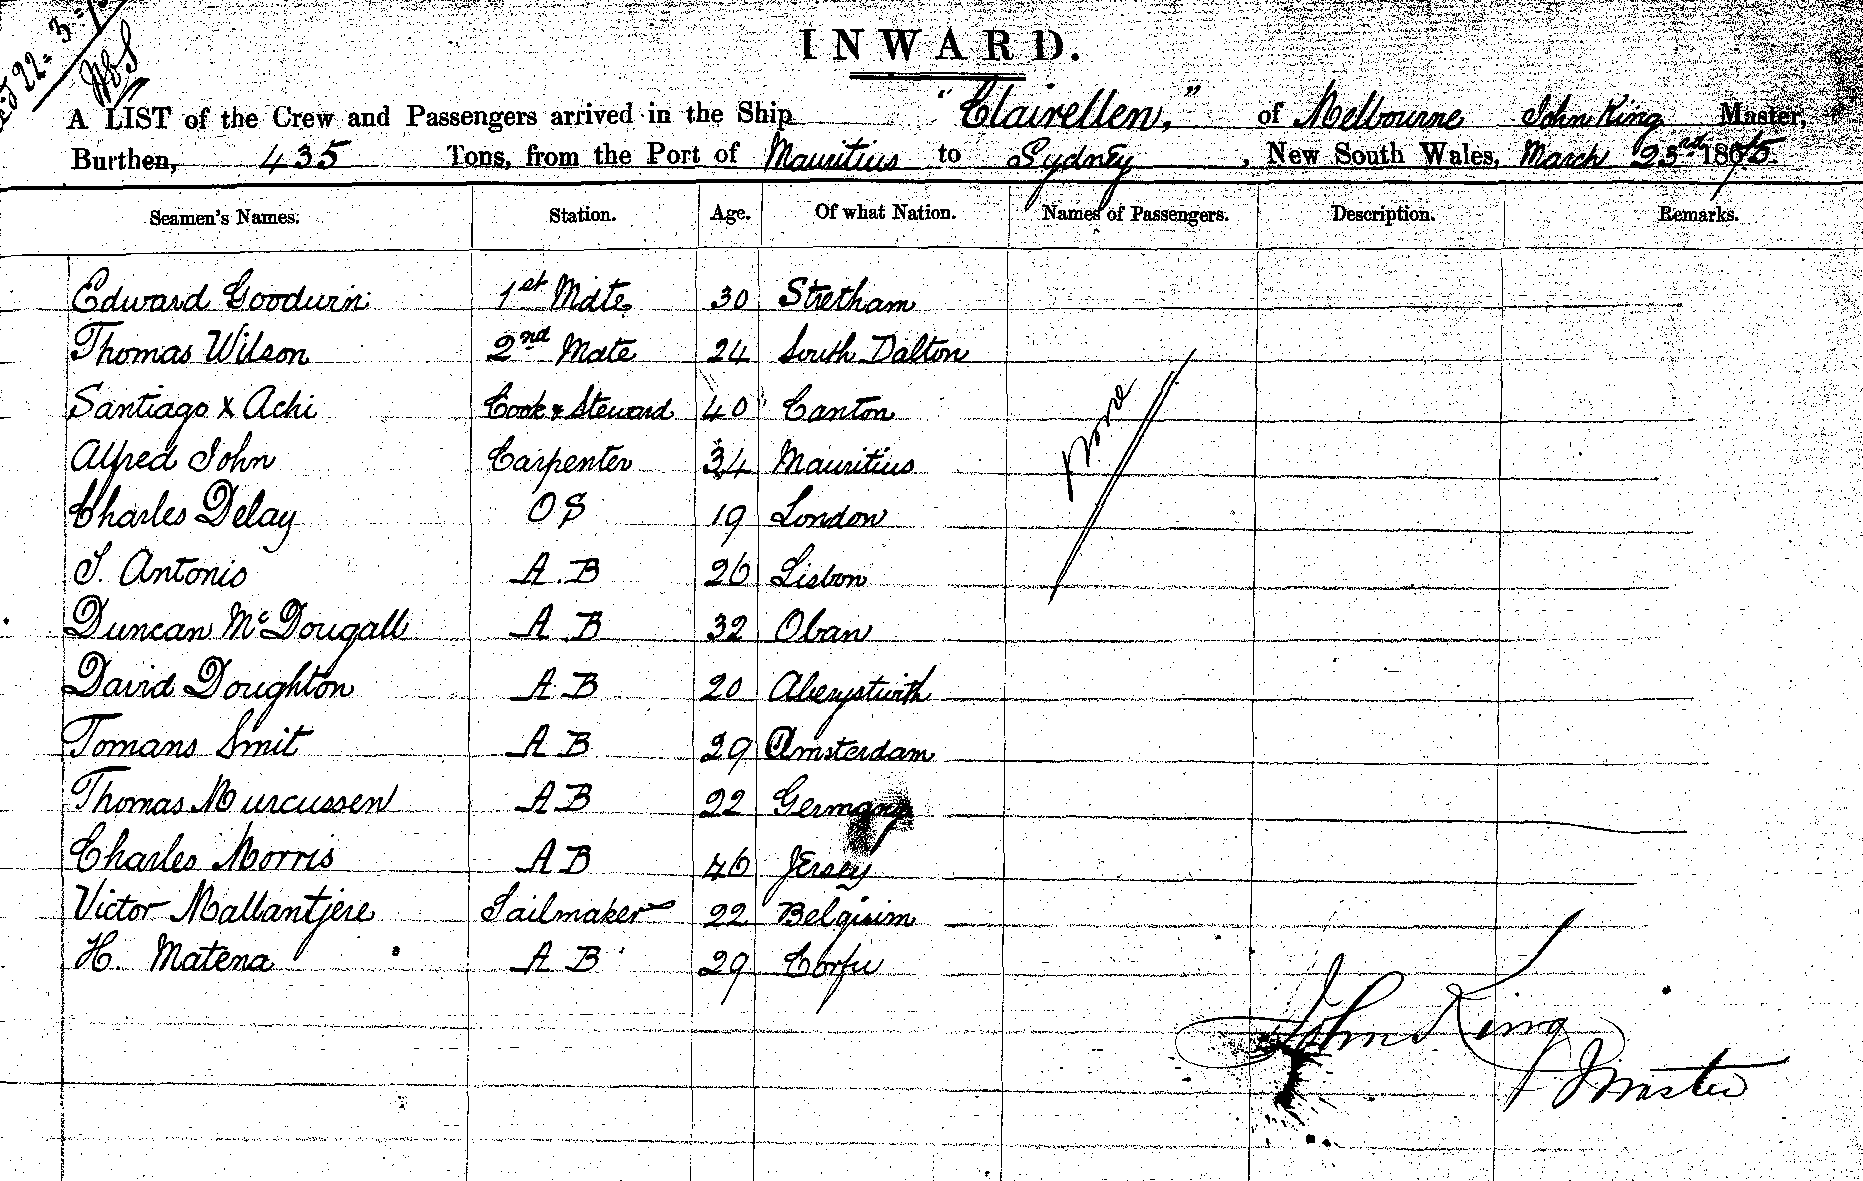 22-3-75
INWARD.
A LIST of the Crew and Passengers arrived in the Ship "Clairellen," of Melbourne John King Master,
Burthen, 435 Tons, from the Port of Mauritius to Sydney, New South Wales, March 23rd 1875.
Seamen's Names. Station. Age. Of what Nation. Names of Passengers. Description. Remarks.
Edward Goodwin 1st Mate 30 Stretham
Thomas Wilson 2nd Mate 24 South Dalton
Santiago x Achi Cook & Steward 40 Canton
None
Alfred John Carpenter 34 Mauritius
Charles Delay OS 19 London
S. Antonio A.B 26 Lisbon
Duncan McDougall A B 32 Oban
David Doughton A B 20 Aberystwith
Tomans Smit A B 29 Amsterdam
Thomas Murcussen A B 22 Germany
Charles Morris A B 46 Jersey
Victor Mallantjere Sailmaker 22 Belgium
H. Matena A B 29 Corfu
John King
Master